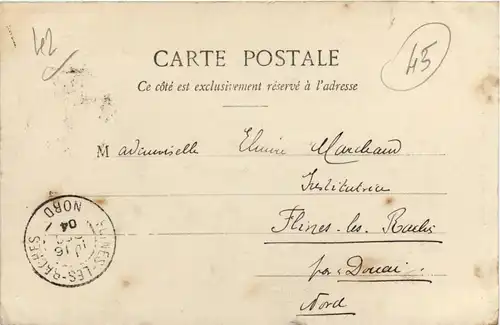 42
45
CARTE POSTALE
Ce côté est exclusivement réservé à l'adresse
Mademoiselle Elmire Marchand
Institutrice
Flines-les-Rachs
par Douai.
Nord
FLINES-LES-RACHES
16
04
NORD